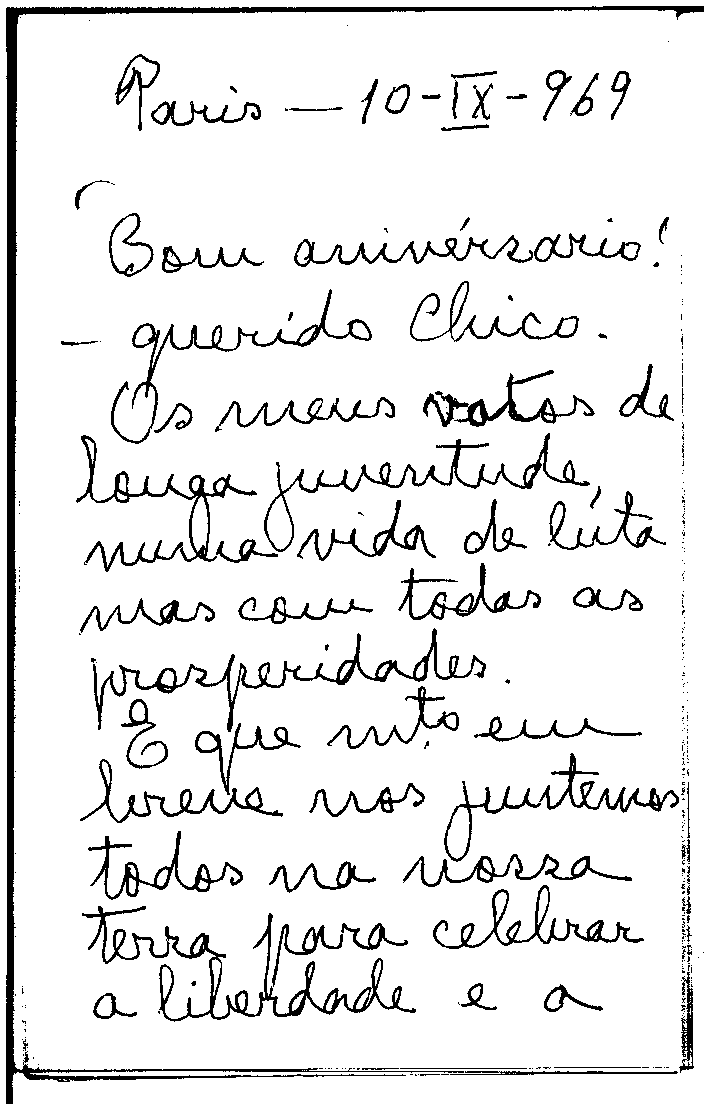 Paris — 10-IX-969
Bom anivérsario!
– querido Chico.
Os meus votos de
longa juventude,
numa vida de lúta
mas com todas as
prosperidades.
E que mto em
breve nos juntemos
todos na nossa
terra para celebrar
a liberdade e a